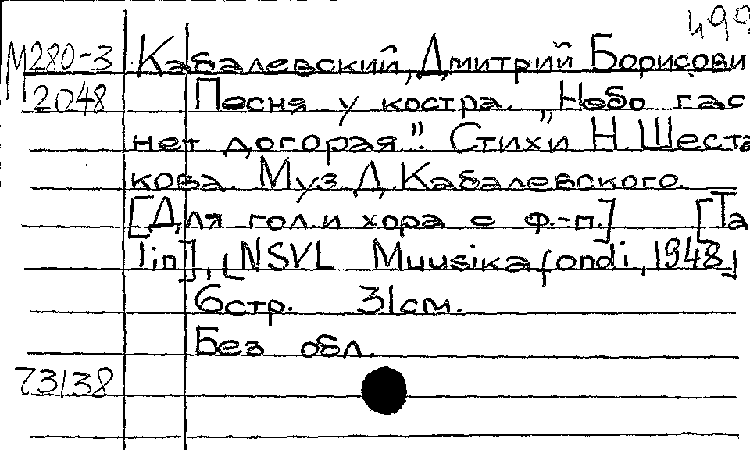 499
М280-3 Кабалевский, Дмитрий Борисови
12048 Песня у костра. „Небо гас
нет догорая". Стихи Н. Шеста
кова. Муз. Д. Кабалевского.
[Для гол. и хора с ф.-п.] [Ta
lin], [NSVL Muusikafondi, 1948]
6 стр. 31 см.
Без обл.
73138